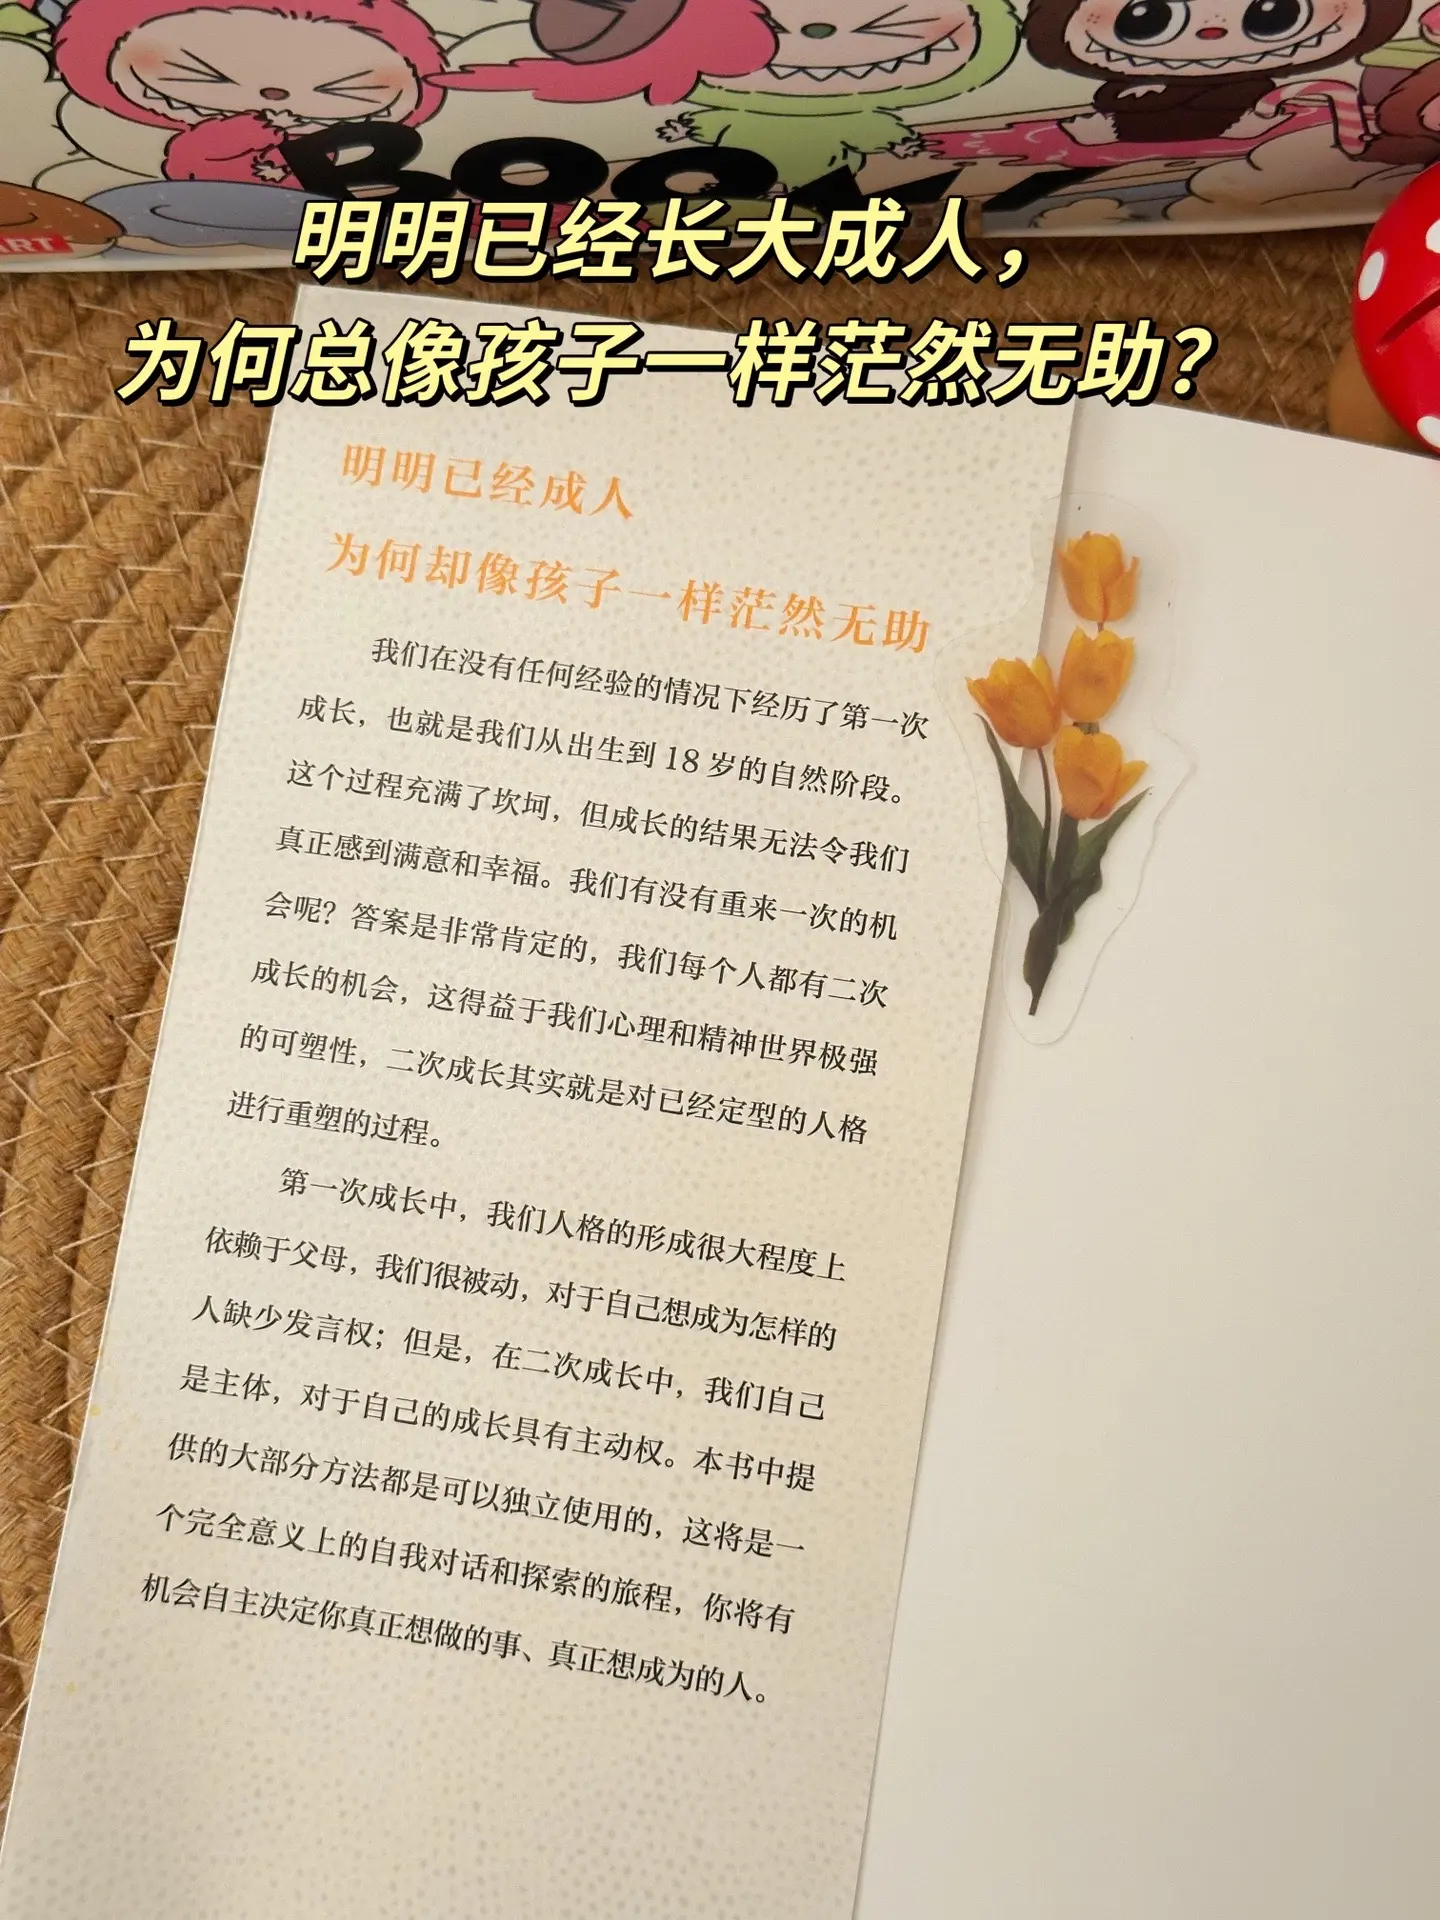 BOOM!
ART
明明已经长大成人，
为何总像孩子一样茫然无助？
明明已经成人
为何却像孩子一样茫然无助
我们在没有任何经验的情况下经历了第一次
成长，也就是我们从出生到 18 岁的自然阶段。
这个过程充满了坎坷，但成长的结果无法令我们
真正感到满意和幸福。我们有没有重来一次的机
会呢？答案是非常肯定的，我们每个人都有二次
成长的机会，这得益于我们心理和精神世界极强
的可塑性，二次成长其实就是对已经定型的人格
进行重塑的过程。
第一次成长中，我们人格的形成很大程度上
依赖于父母，我们很被动，对于自己想成为怎样的
人缺少发言权；但是，在二次成长中，我们自己
是主体，对于自己的成长具有主动权。本书中提
供的大部分方法都是可以独立使用的，这将是一
个完全意义上的自我对话和探索的旅程，你将有
机会自主决定你真正想做的事、真正想成为的人。